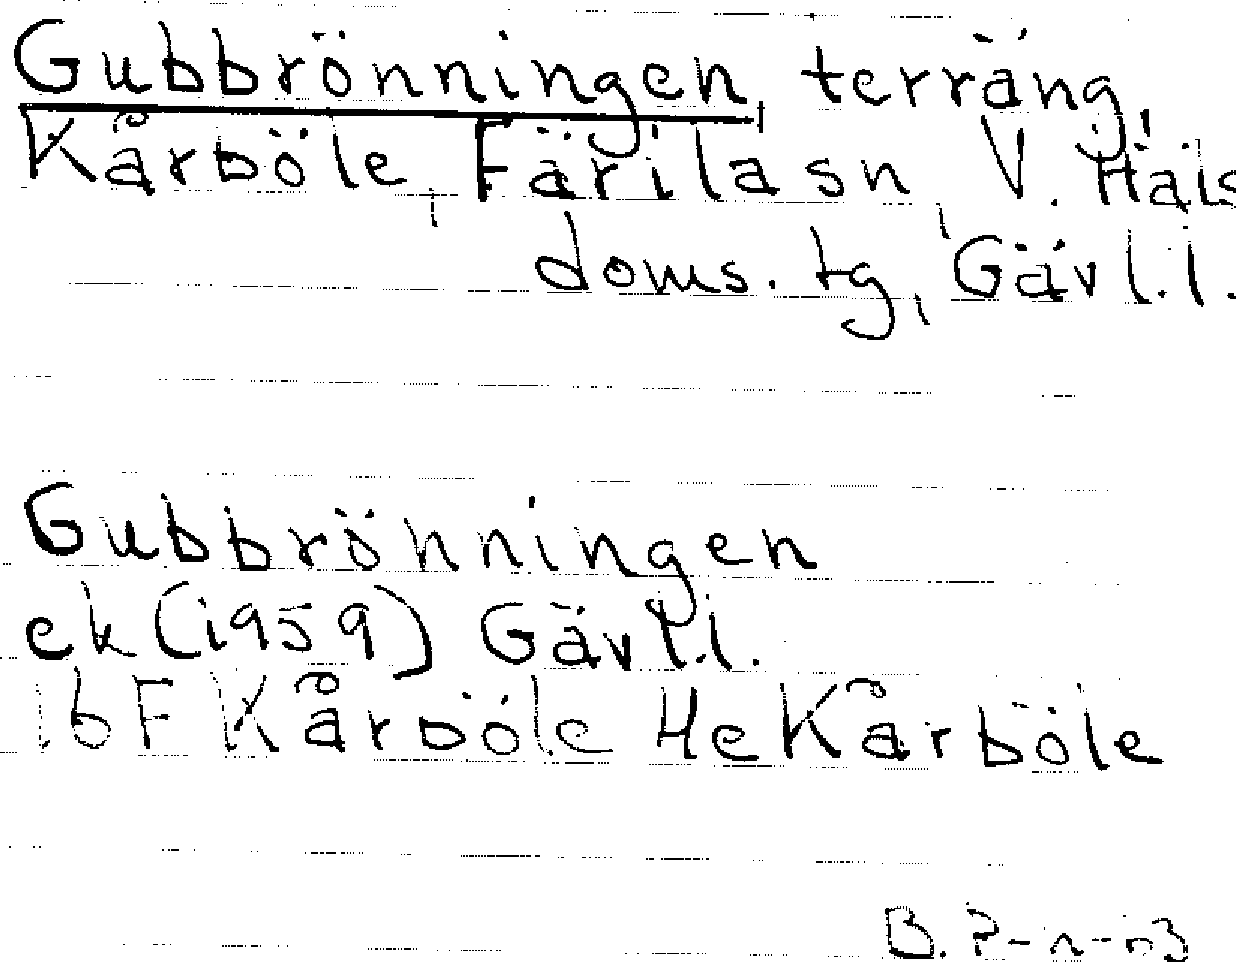 Gubbrönningen, terräng,
Kårböle, Färila sn, V. Häls
doms. tg, Gävl.l.
Gubbrönningen
ek (1959) Gävl.l.
16F Kårböle 4e Kårböle